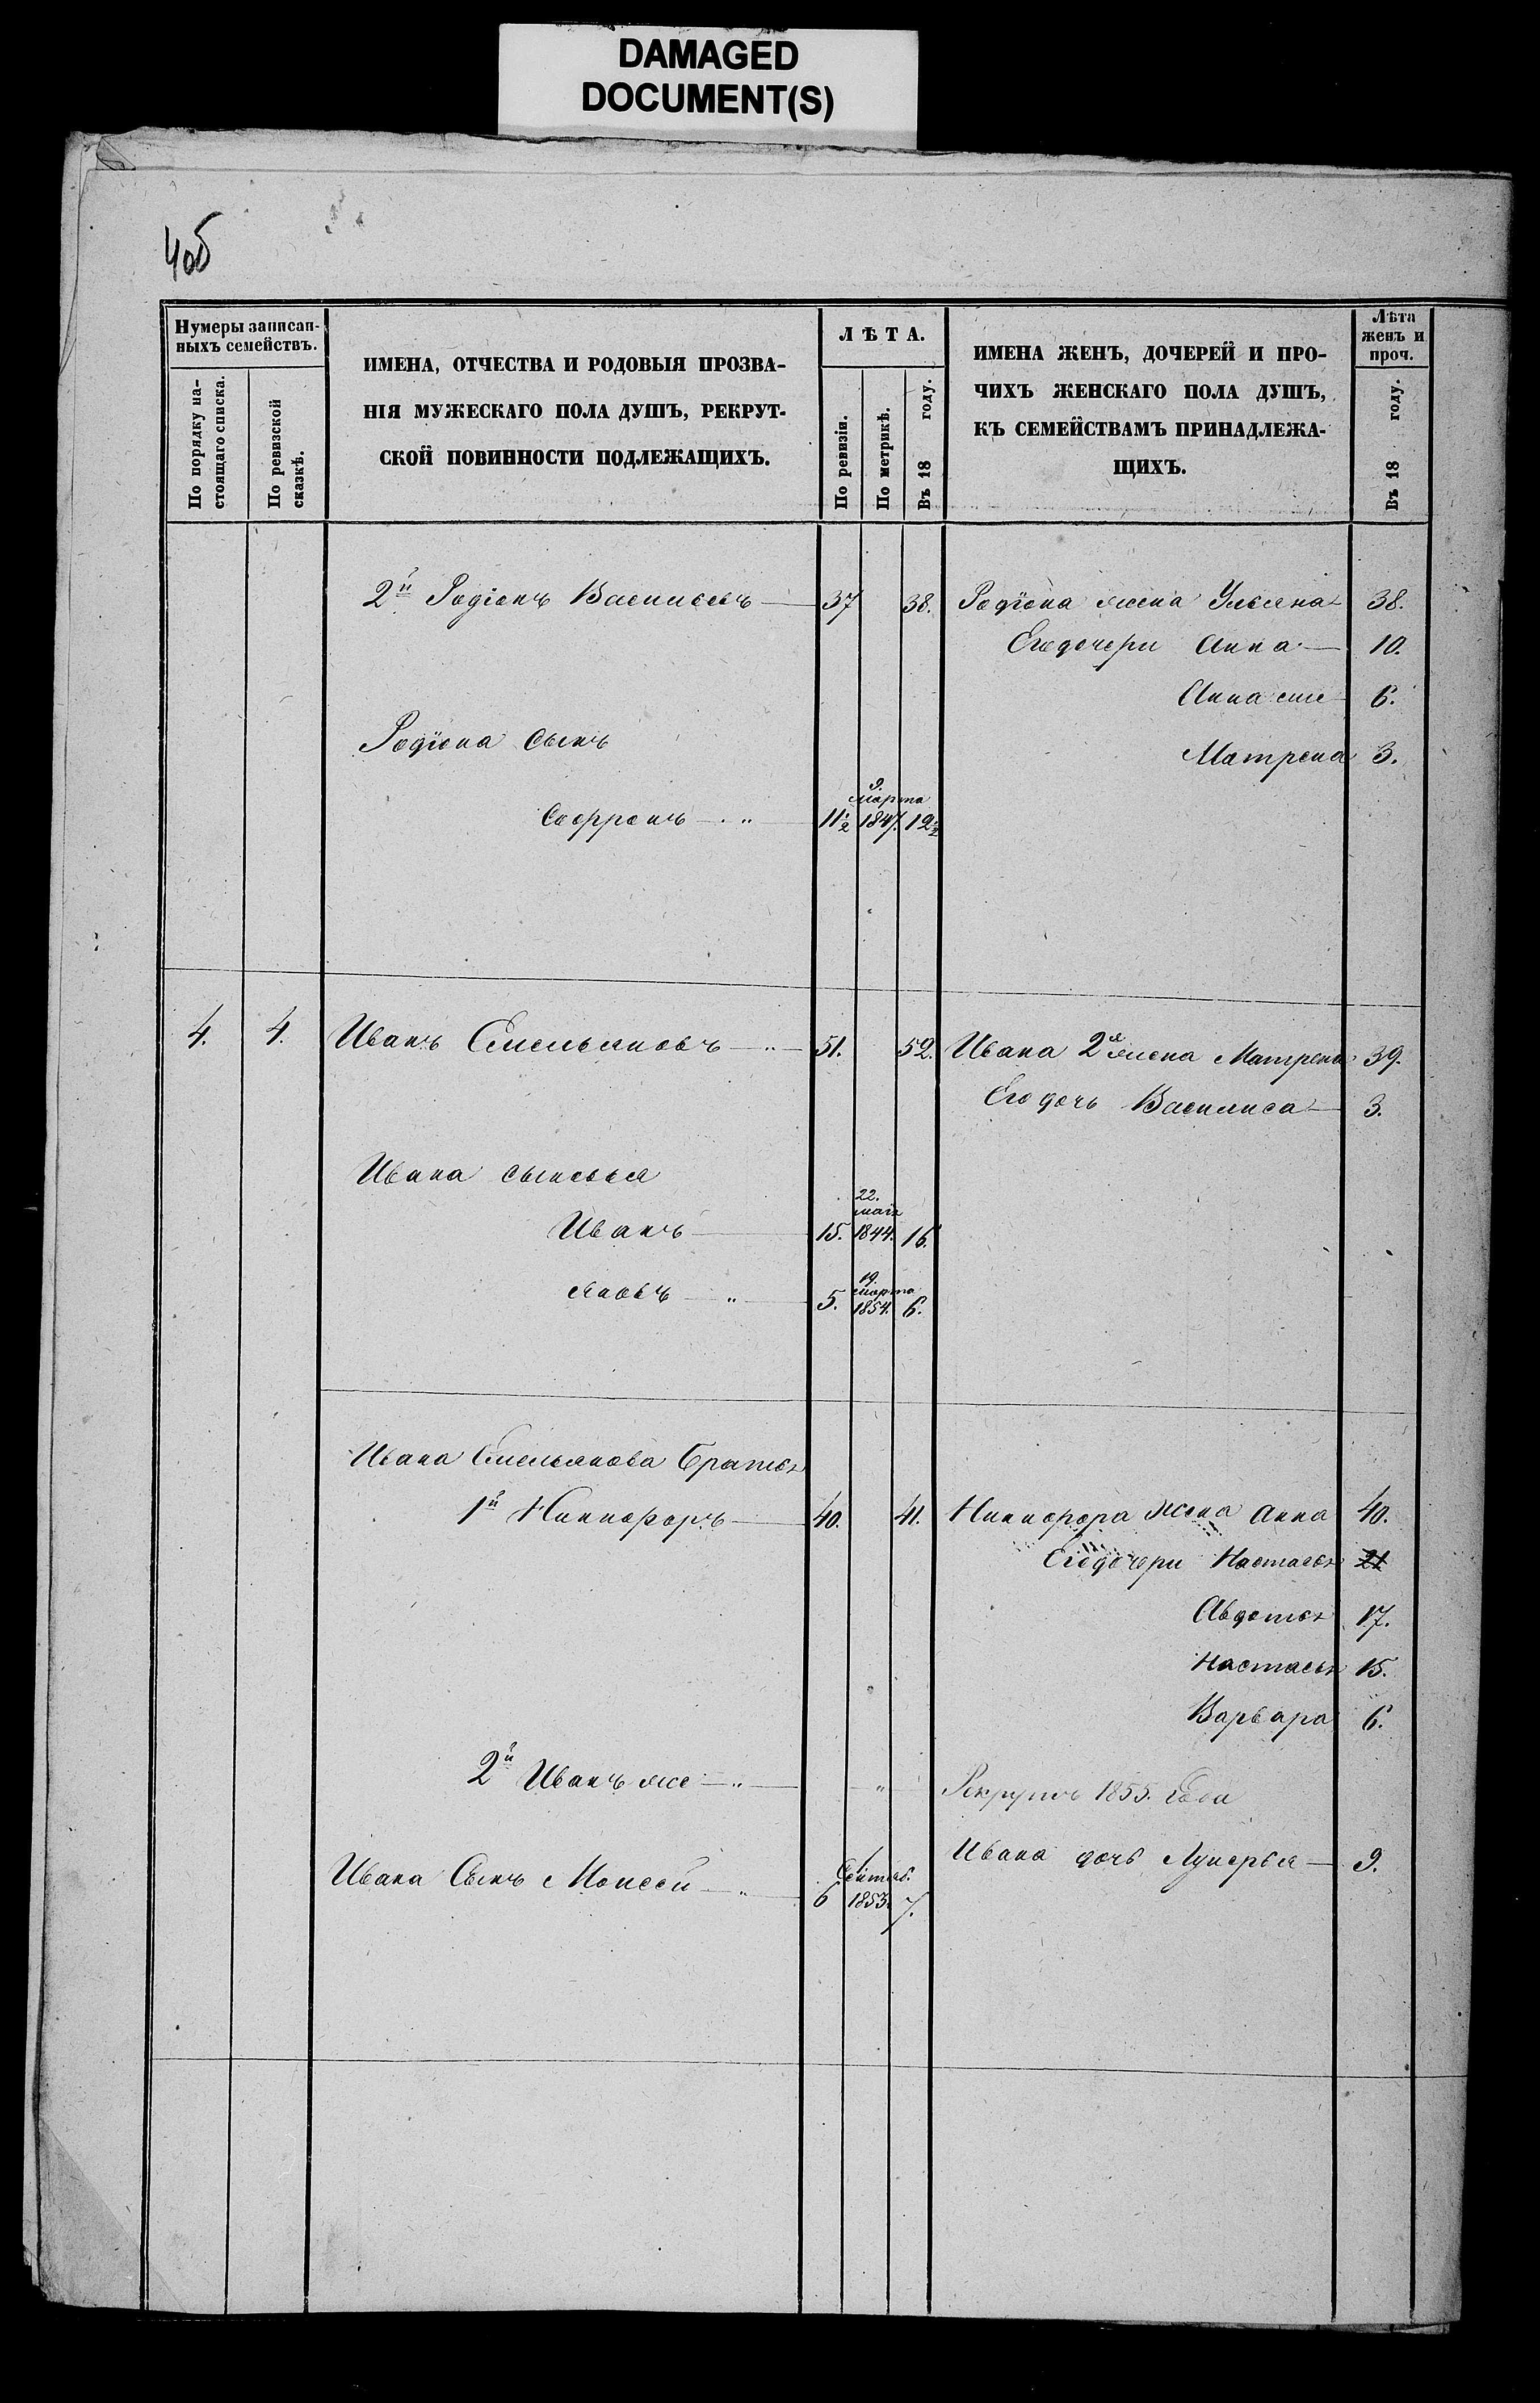 DAMAGED
DOCUMENT(S)
4об
Нумеры записан-
ныхъ семействъ.
По порядку на-
стоящаго списка.
По ревизской
сказкѣ.
ИМЕНА, ОТЧЕСТВА И РОДОВЫЯ ПРОЗВА-
НІЯ МУЖЕСКАГО ПОЛА ДУШЪ, РЕКРУТ-
СКОЙ ПОВИННОСТИ ПОДЛЕЖАЩИХЪ.
ЛѢТА.
По ревизіи.
По метрикѣ.
Въ 18 году.
ИМЕНА ЖЕНЪ, ДОЧЕРЕЙ И ПРО-
ЧИХЪ ЖЕНСКАГО ПОЛА ДУШЪ,
КЪ СЕМЕЙСТВАМЪ ПРИНАДЛЕЖА-
ЩИХЪ.
Лѣта
женъ и
проч.
Въ 18 году.
2й Родіонъ Васильевъ — 37 38. Родіона жена Ульяна 38.
Его дочери Анна — 10.
Анна еще 6.
Родіона сынъ
Матрена 3.
9.
марта
Софронъ — " 11½ 1847. 12½
4. 4. Иванъ Емельяновъ — " — 51. 52. Ивана 2я жена Матрена 39.
Его дочь Василиса — 3.
Ивана сыновья
22.
маія
Иванъ — 15. 1844. 16.
19.
марта
Яковъ — " — 5. 1854. 6.
Ивана Емельянова Братья
1й Никифоръ — 40. 41. Никифора жена Анна 40.
Его дочери Настасья 21
Авдотья 17.
Настасья 15.
Варвара 6.
2й Иванъ же — " — " Рекрутъ 1855. Года
Ивана дочь Лукерья — 9.
1
Сентяб.
Ивана Сынъ Моисей — " 6 1853. 7.